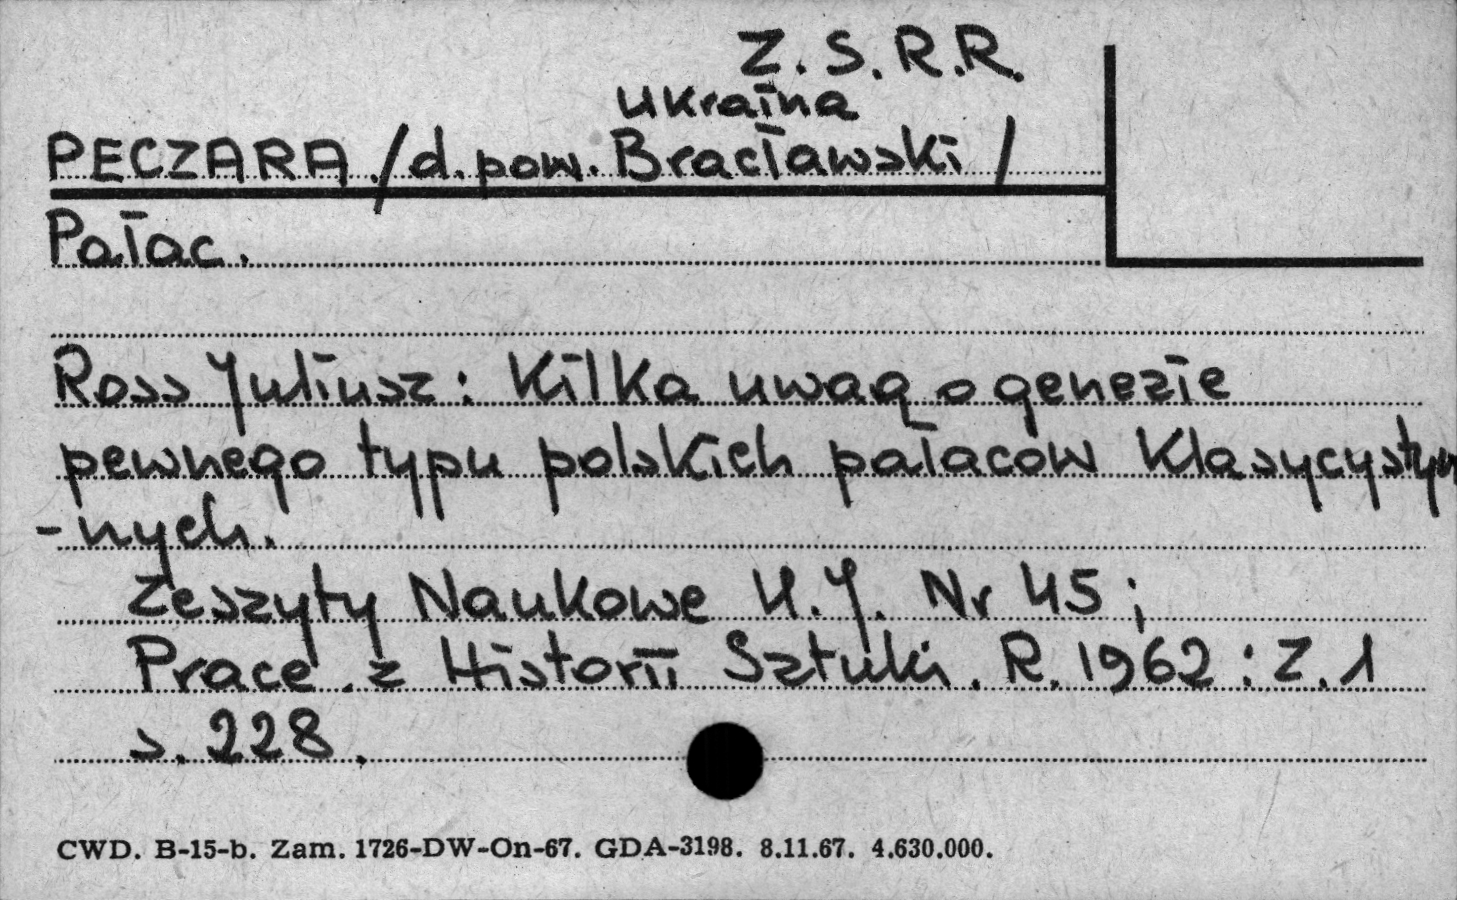 Z. S. R. R.
Ukraina
PECZARA /d. pow. Bracławski /
Pałac.
Ross Juliusz : Kilka uwag o genezie
pewnego typu polskich pałaców klasycystyn
-nych.
Zeszyty Naukowe U.J. Nr 45 ;
Prace z Historii Sztuki. R. 1962 : Z. 1
s. 228.
CWD. B-15-b. Zam. 1726-DW-On-67. GDA-3198. 8.11.67. 4.630.000.